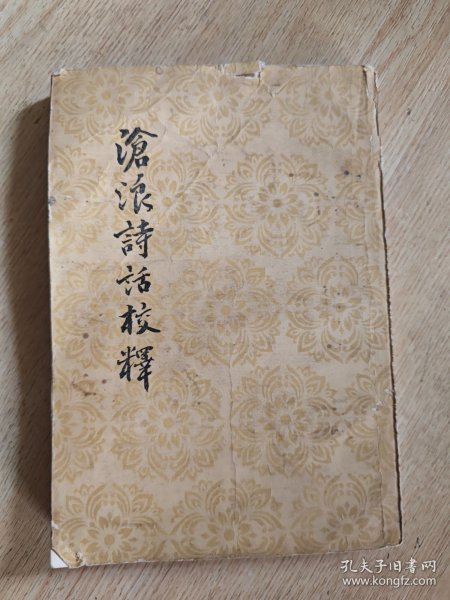 滄浪詩話校釋
孔夫子旧书网
www.kongfz.com